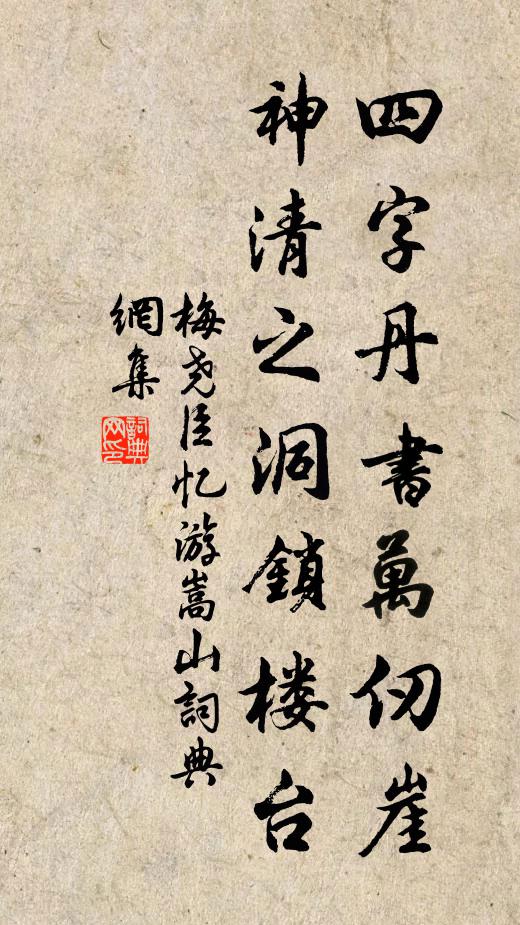 四字丹書萬仞崖
神清之洞鎖楼台
梅尧臣忆游嵩山詞典
網集
詞典網印